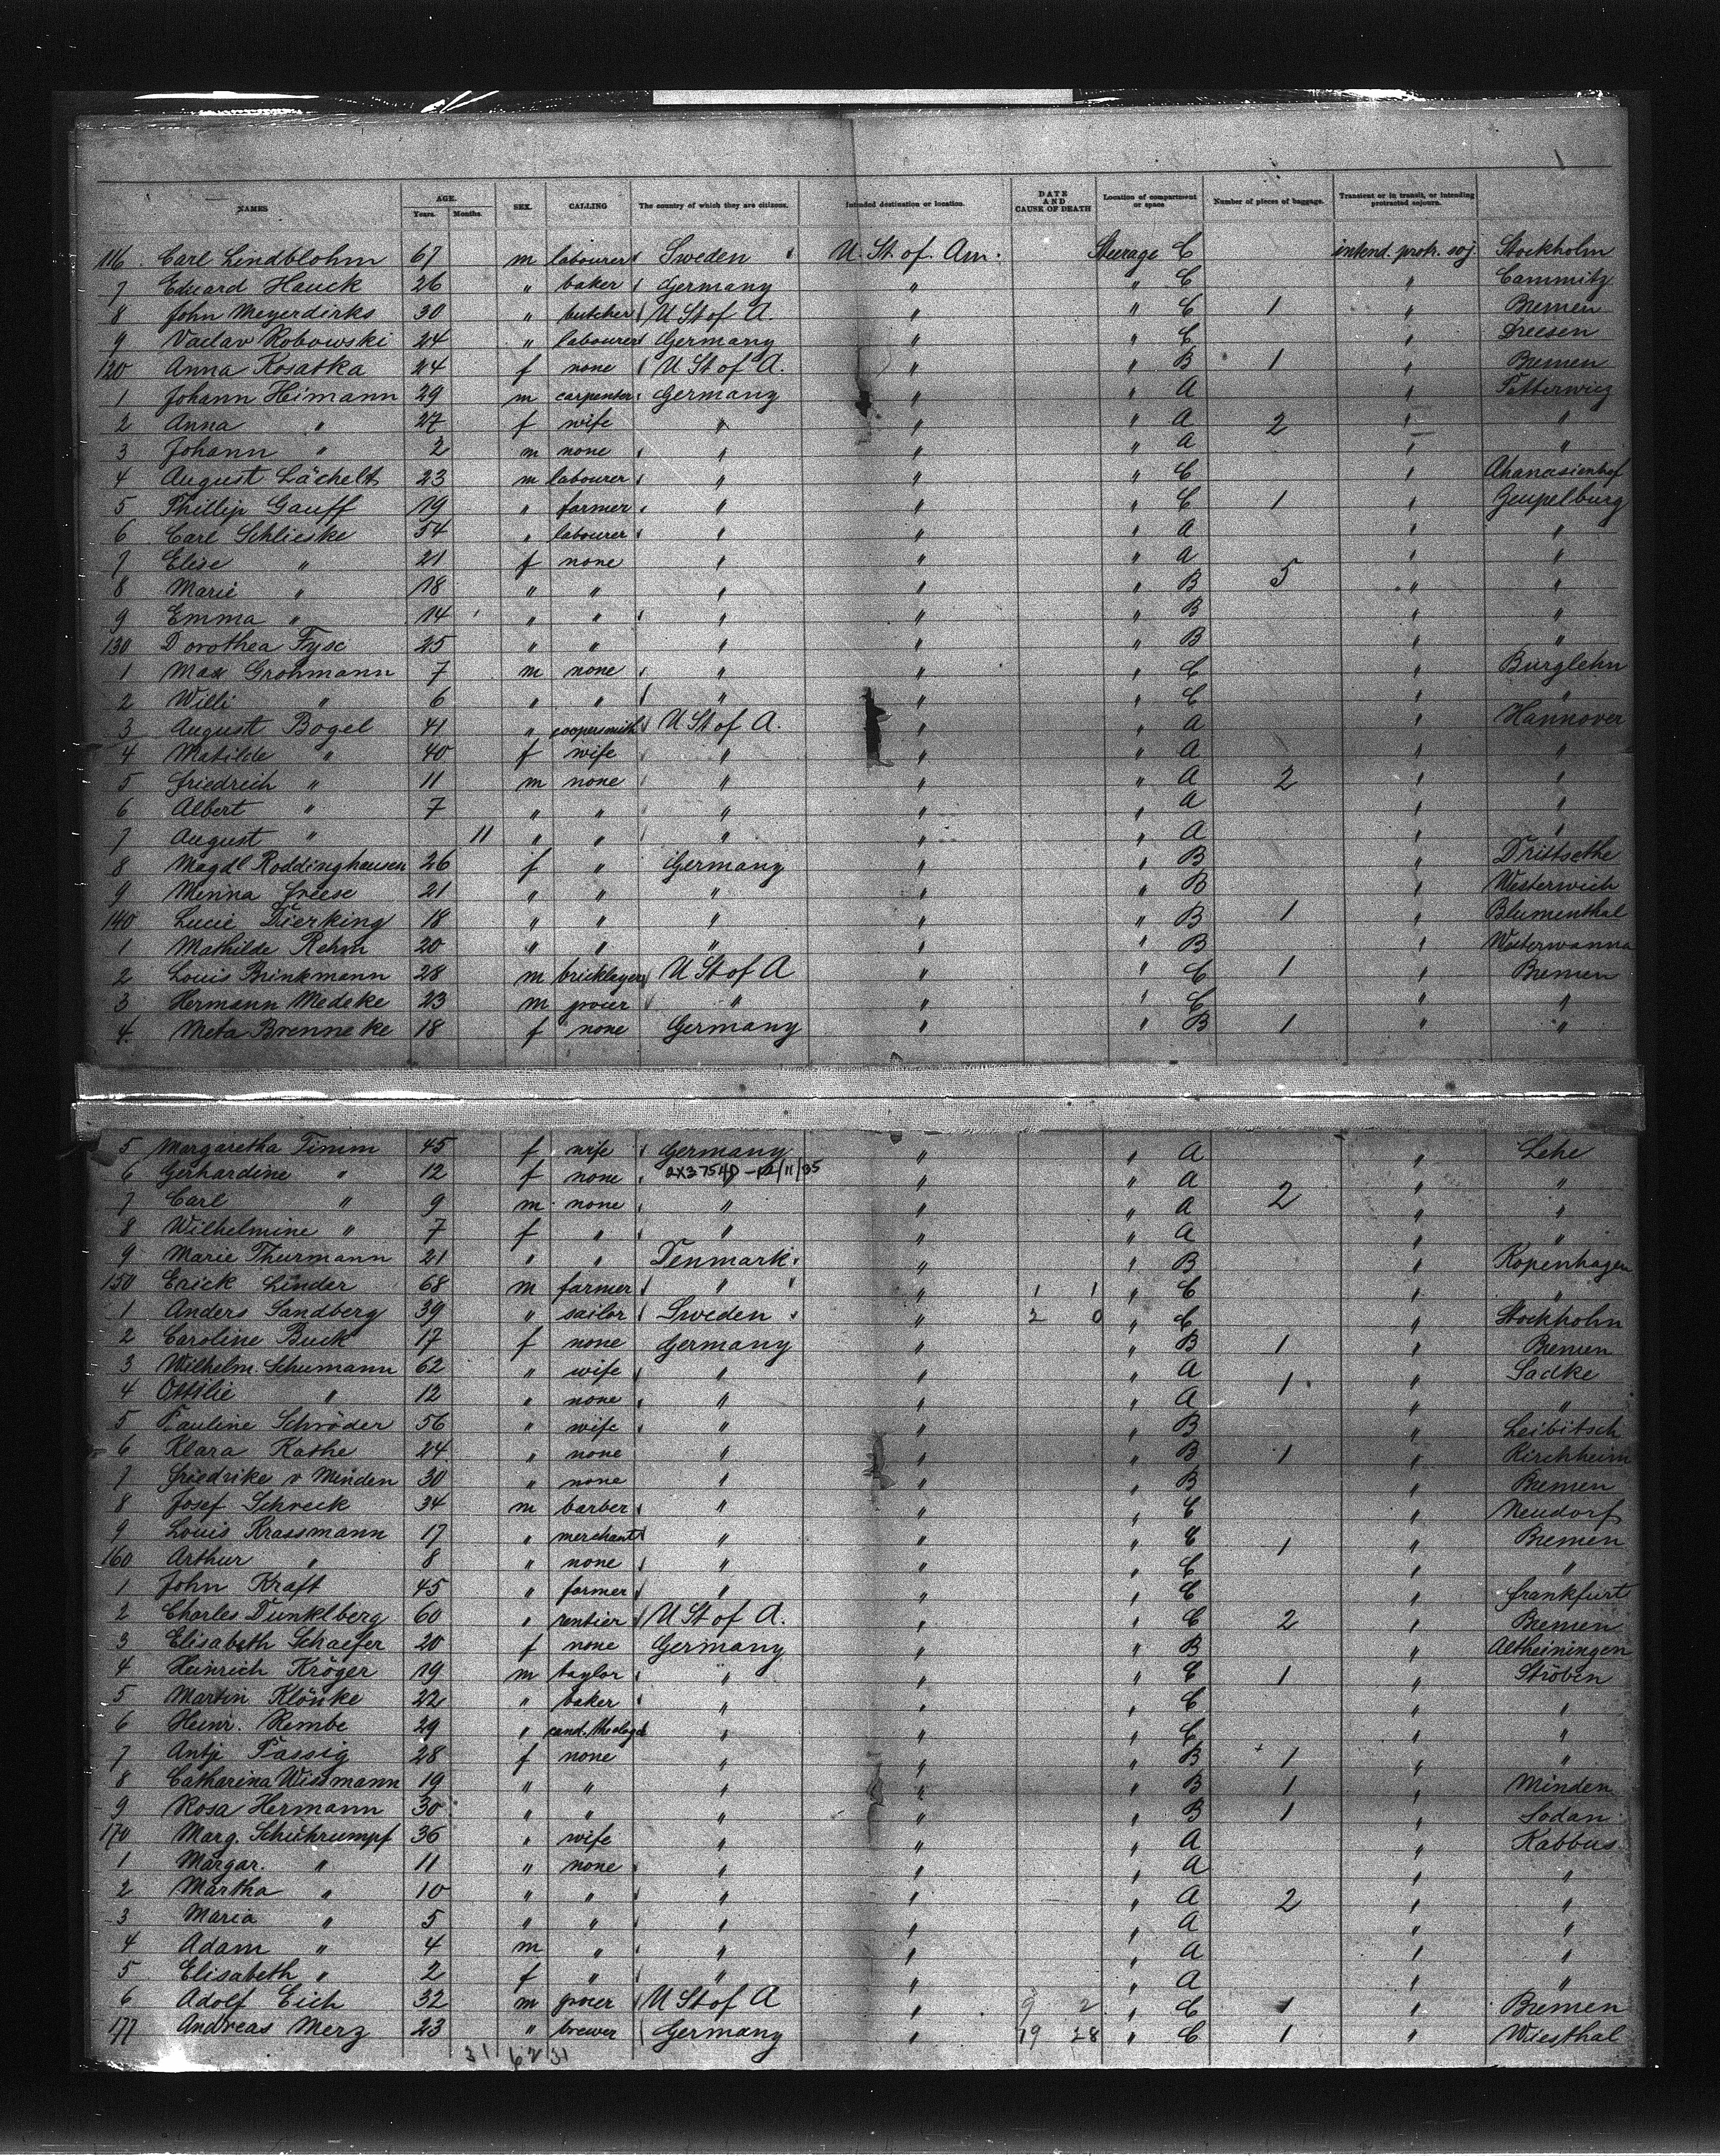 NAMES AGE. Years. Months. SEX. CALLING The country of which they are citizens. Intended destination or location. DATE AND CAUSE OF DEATH Location of compartment or space Number of pieces of baggage. Transient or in transit, or intending protracted sojourn.
116 Carl Lindblohm 67 m labourer Sweden U. St. of. Am. Steerage C intend. protr. soj. Stockholm
7 Eduard Hauck 26 " baker Germany " " C " Cammitz
8 John Meyerdirks 30 " butcher U St of A. " " C 1 " Bremen
9 Vaclav Robowski 24 " labourer Germany " " C " Dreesen
120 Anna Kosatka 24 f none U St of A. " " B 1 " Bremen
1 Johann Heimann 29 m carpenter Germany " " A "
2 Anna " 27 f wife " " " A 2 " "
3 Johann " 2 m none " " " A " "
4 August Lächelt 23 m labourer " " " C " Ahanasienhof
5 Phillip Gauff 19 " farmer " " " C 1 " Zeupelburg
6 Carl Schlieske 54 " labourer " " " A " "
7 Elise " 21 f none " " " A " "
8 Marie " 18 " " " " " B 5 " "
9 Emma " 14 " " " " " B " "
130 Dorothea Fyse 25 " " " " " B " "
1 Max Grohmann 7 m none " " " C " Burglehn
2 Willi " 6 " " " " " C " "
3 August Bogel 41 " coopersmith U St of A. " " A " Hannover
4 Matilde " 40 f wife " " " A " "
5 Friedrich " 11 m none " " " A 2 " "
6 Albert " 7 " " " " " A " "
7 August " 11 " " " " " A " "
8 Magdl Roddinghausen 26 f " Germany " " B " Drittsethe
9 Minna Freese 21 " " " " " B " Westerwich
140 Lucie Dierking 18 " " " " " B 1 " Blumenthal
1 Mathilde Rehm 20 " " " " " B " Westerwanna
2 Louis Brinkmann 28 m bricklayer U St of A " " C 1 " Bremen
3 Hermann Medeke 23 m grocer " " " C " "
4. Meta Brenneke 18 f none Germany " " B 1 " "
5 Margaretha Timm 45 f wife Germany " " A " Lehe
6 Gerhardine " 12 f none 2X37540 - 12/11/35 " " " A " "
7 Carl " 9 m none " " " A 2 " "
8 Wilhelmine " 7 f " " " " A " "
9 Marie Thurmann 21 " " Denmark " " B " Kopenhagen
150 Erick Linder 68 m farmer " " 1 1 " C " "
1 Anders Sandberg 39 " sailor Sweden " 2 0 " C " Stockholm
2 Caroline Buck 17 f none Germany " " B 1 " Bremen
3 Wilhelm. Schumann 62 " wife " " " A " Sadke
4 Ottilie " 12 " none " " " A 1 " "
5 Pauline Schröder 56 " wife " " " B " Leibitsch
6 Klara Kathe 24 " none " " " B 1 " Kirchheim
7 Friedrike v Minden 30 " none " " " B " Bremen
8 Josef Schreck 34 m barber " " " C " Neudorf
9 Louis Krassmann 17 " merchant " " " C 1 " Bremen
160 Arthur " 8 " none " " " C " "
1 John Kraft 45 " farmer " " " C " Frankfurt
2 Charles Dunklberg 60 " rentier U St of A. " " C 2 " Bremen
3 Elisabeth Schaefer 20 f none Germany " " B " Altheiningen
4 Heinrich Kröger 19 m taylor " " " C 1 " Ströben
5 Martin Klönke 22 " baker " " " C " "
6 Heinr. Rembe 29 " cand. theolog " " " C " "
7 Antje Passig 28 f none " " " B 1 " "
8 Catharina Wissmann 19 " " " " " B 1 " Minden
9 Rosa Hermann 30 " " " " " B 1 " Sodan
170 Marg. Schuhrumpf 36 " wife " " " A " Kabbus
1 Margar. " 11 " none " " " A " "
2 Martha " 10 " " " " " A 2 " "
3 Maria " 5 " " " " " A " "
4 Adam " 4 m " " " " A " "
5 Elisabeth " 2 f " " " " A " "
6 Adolf Eich 32 m grocer U St of A " 9 2 " C 1 " Bremen
177 Andreas Merz 23 " brewer Germany " 19 28 " C 1 " Wiesthal
31 62 31